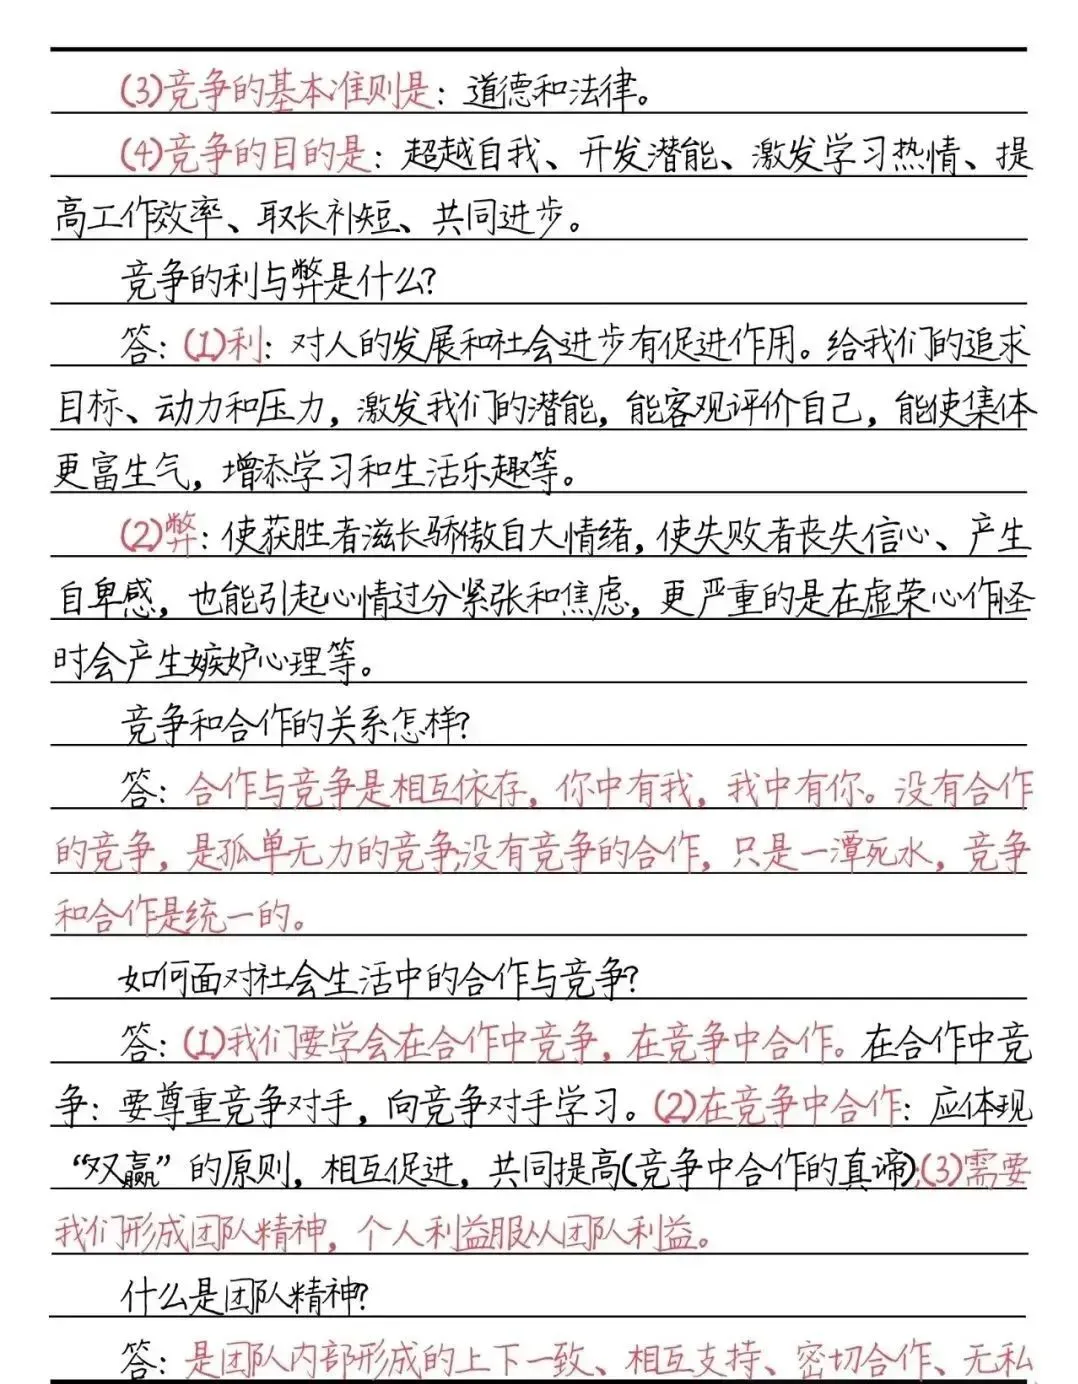 (3)竞争的基本准则是：道德和法律。
(4)竞争的目的是：超越自我、开发潜能、激发学习热情、提
高工作效率、取长补短、共同进步。
竞争的利与弊是什么？
答：(1)利：对人的发展和社会进步有促进作用。给我们的追求
目标、动力和压力，激发我们的潜能，能客观评价自己，能使集体
更富生气，增添学习和生活乐趣等。
(2)弊：使获胜者滋长骄傲自大情绪，使失败者丧失信心、产生
自卑感，也能引起心情过分紧张和焦虑，更严重的是在虚荣心作怪
时会产生嫉妒心理等。
竞争和合作的关系怎样？
答：合作与竞争是相互依存，你中有我，我中有你。没有合作
的竞争，是孤单无力的竞争;没有竞争的合作，只是一潭死水，竞争
和合作是统一的。
如何面对社会生活中的合作与竞争？
答：(1)我们要学会在合作中竞争，在竞争中合作。在合作中竞
争：要尊重竞争对手，向竞争对手学习。(2)在竞争中合作：应体现
“双赢”的原则，相互促进，共同提高(竞争中合作的真谛);(3)需要
我们形成团队精神，个人利益服从团队利益。
什么是团队精神？
答：是团队内部形成的上下一致、相互支持、密切合作、无私